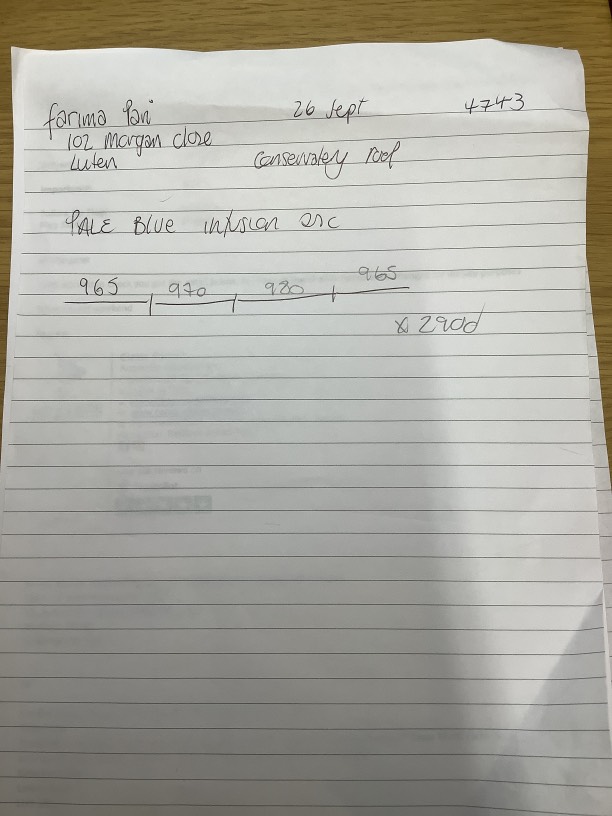 farima Pari 26 Sept 4743
102 Morgan close
Luten Conservatey roof
PALE BLUE infusion esc
965 970 980 965
x 290d